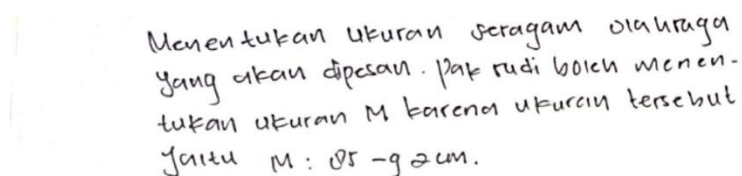 Menentukan ukuran seragam olahraga
yang akan dipesan. Pak rudi boleh menen-
tukan ukuran M karena ukuran tersebut
yaitu M : 85 - 92 cm.